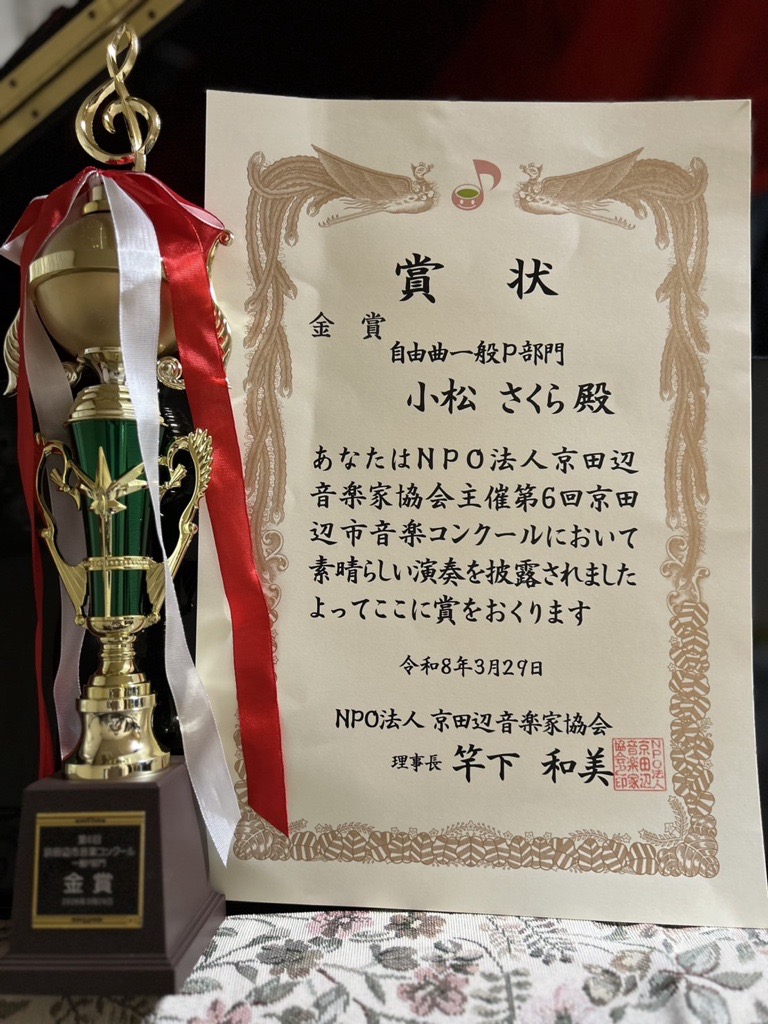 賞 状
金 賞
自由曲一般P部門
小松 さくら 殿
あなたはNPO法人京田辺
音楽家協会主催第6回京田
辺市音楽コンクールにおいて
素晴らしい演奏を披露されました
よってここに賞をおくります
令和8年3月29日
NPO法人 京田辺音楽家協会
理事長 竿下 和美
NPO法人
京田辺
音楽家
協会之印
第6回
京田辺市音楽コンクール
一般P部門
金賞